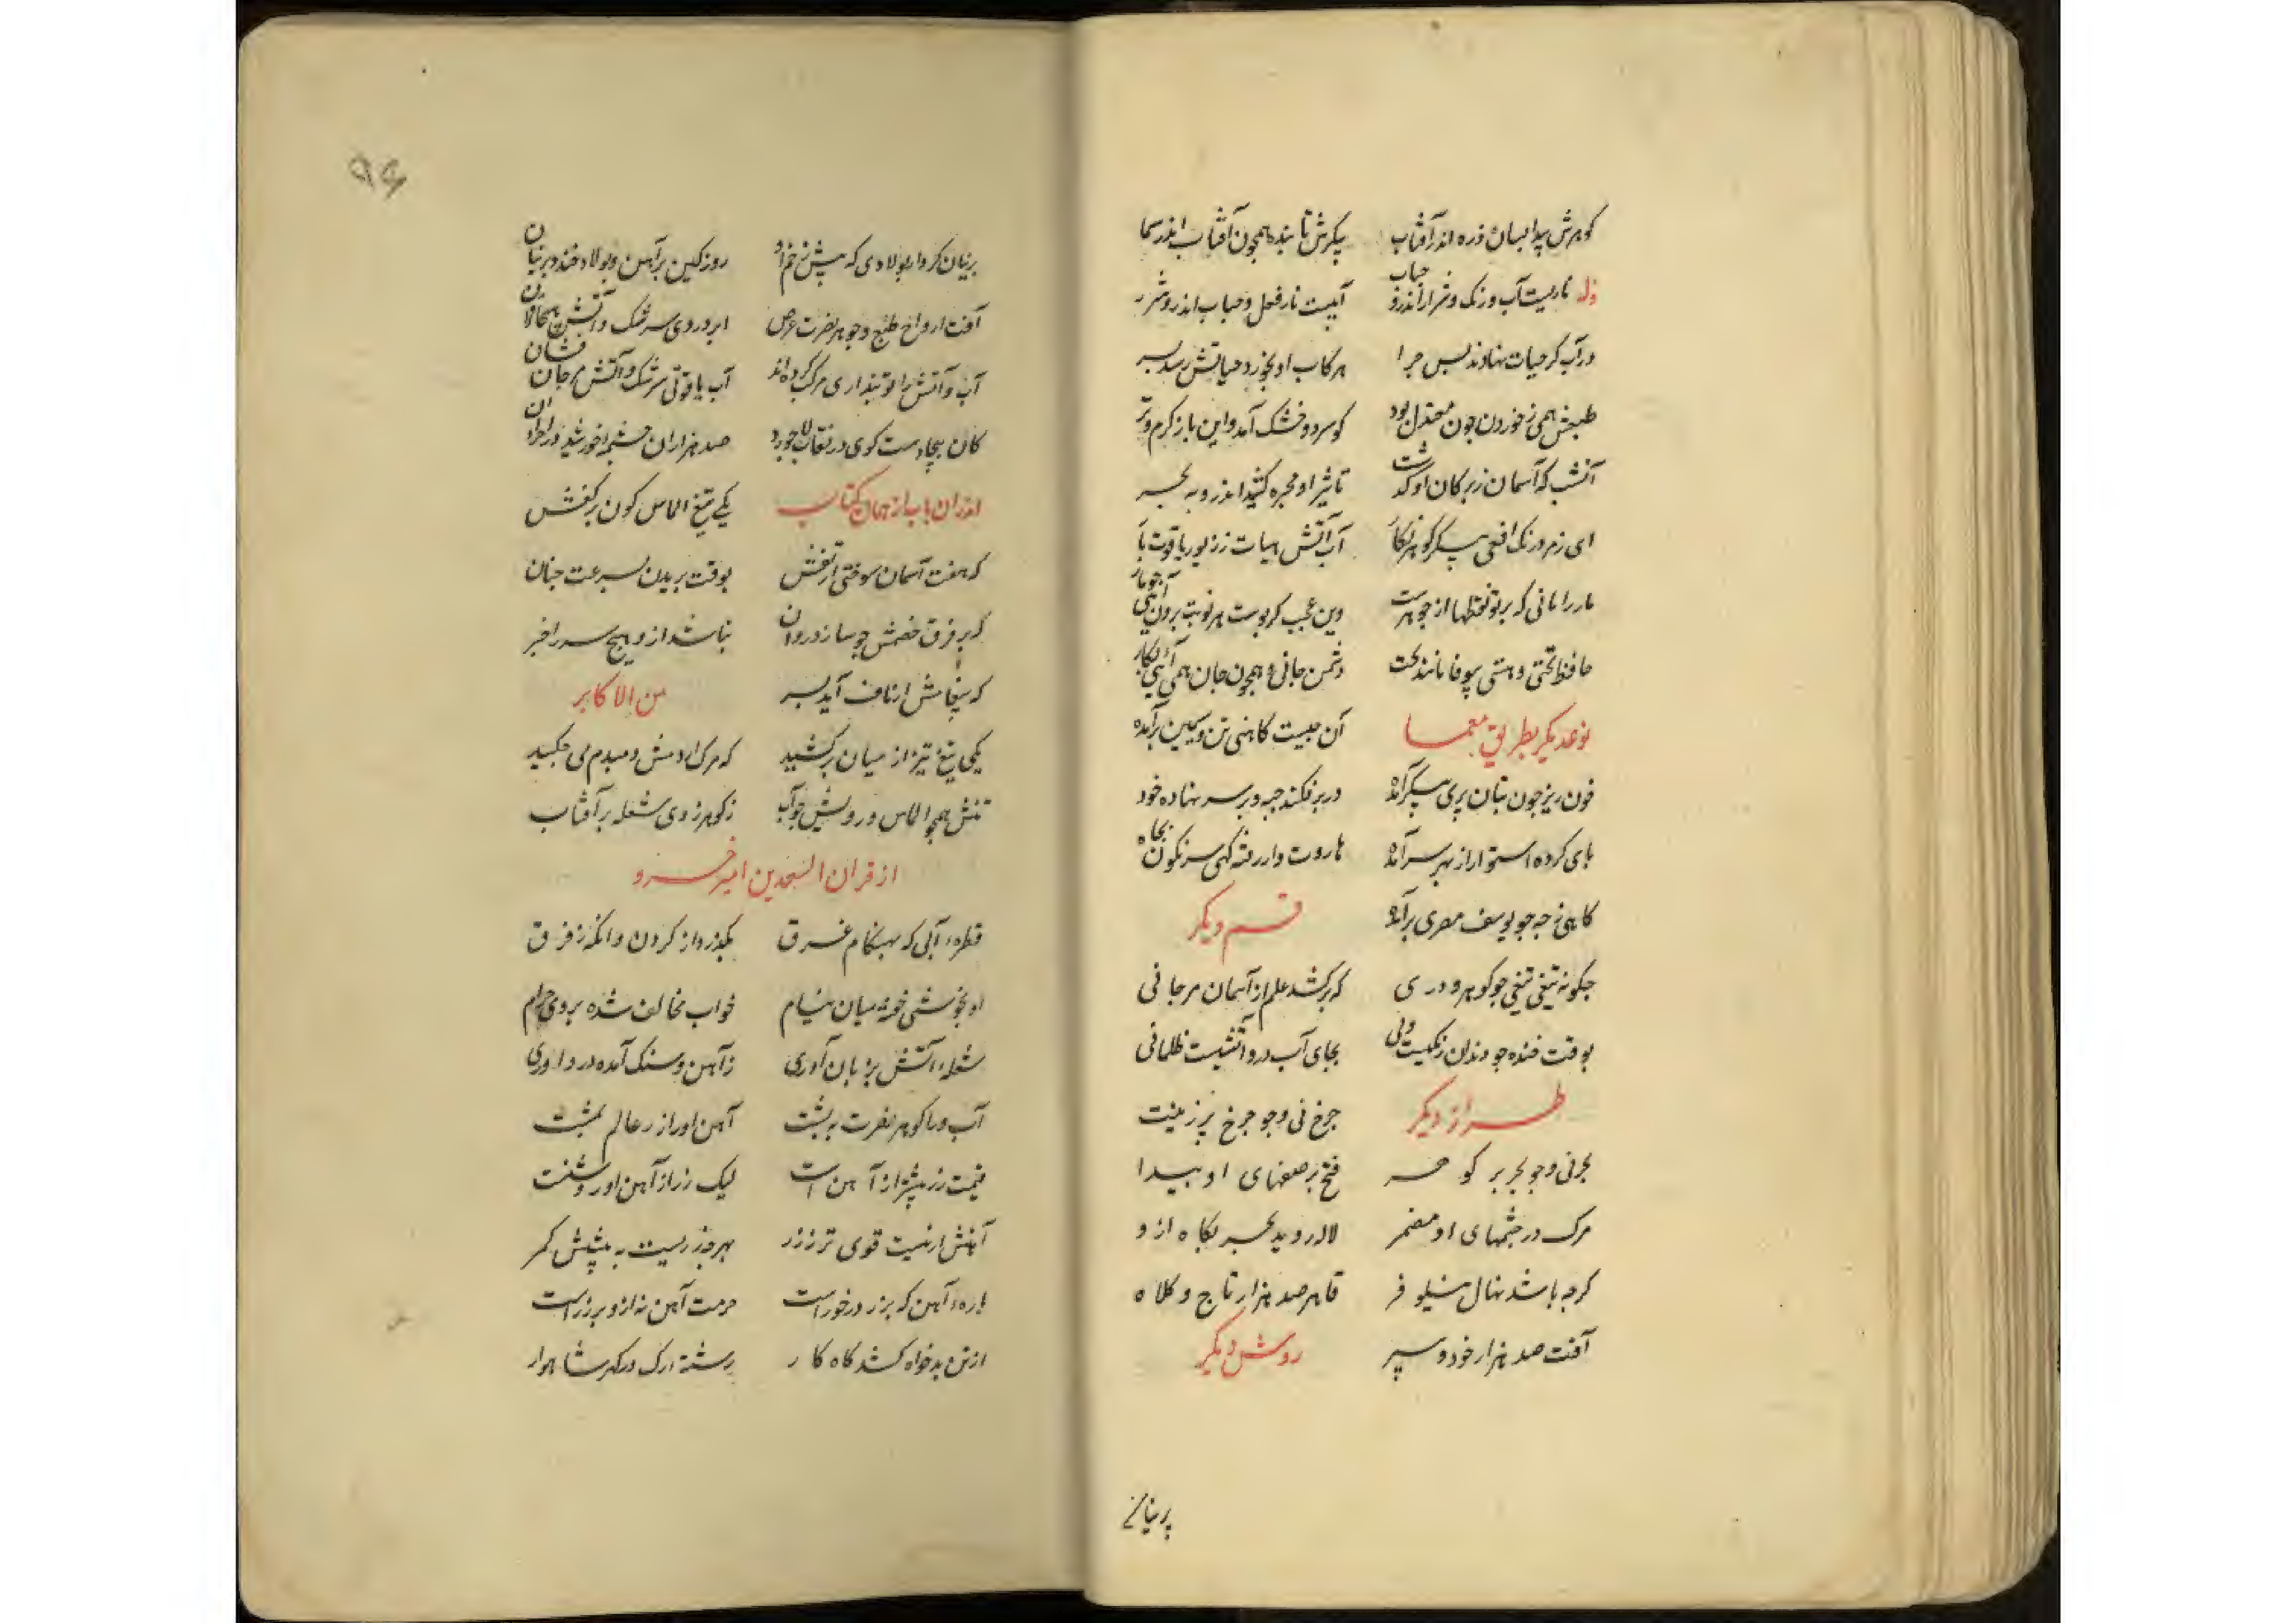 کوهرش پیدا بسان ذره اندر آفتاب پیکرش تابنده همچون آفتاب اندر سما
وله ناریست آب ورنک وشرار اندرو حباب آبیست نار فعل وحباب اندرو شرر
در آب کر حیات نهادند بس چرا هرکاب او بخورد حیاتش رسد بسر
طبعش همی ز خوردن چون معتدل بود کو سرد وخشک آمد واین باز کرم وتر
آتشب که آسمان زبر کان او کذشت تاثیر او مجره کشید اندرو به بحر
ای زمرد رنک افعی پیکر کوهرنکار آب آتش هیات زر زیور یاقوت بار
مار را مانی که بر تو نقطها از جوهرست وین عجب کز پوست هر نوبت برون آیی چو مار
حافظ تختی وهستی بیوفا مانند بخت دشمن جانی وهمچون جان همی آیی بکار
نوعدیکر بطریق معما آن چیست کاهنی تن وسیمین بر آمده
خون ریز چون بتان پری پیکر آمده در بر فکنده جبه وبر سر نهاده خود
پای کرده استوار از بهر سر آمده هاروت وار رفته کهی سرنکون بچاه
کاهی ز چه چو یوسف مصری بر آمده قسم دیکر
چکونه تیغی تیغی چو کوهر ودری که برکشد علم از آسمان مرجانی
بوقت خنده چو دندان زنکیست ولی بجای آب درو آتشیست ظلمانی
طراز دیکر چرخ نی وچو چرخ پر زینت
بحر نی وچو بحر پر کوهر فتح بر صفهای او پیدا
مرک در چشمهای او مضمر لاله روید بحر بکاه ازو
کرچه باشد نهال نیلوفر قاهر صد هزار تاج وکلاه
آفت صد هزار خود وسپر روش دیکر
پرنیان
۹۶
پرنیان کردار پولادی که پیش زخم او روز کین بر آهن وپولاد خندد پرنیان
آفت ارواح طبع وجوهر نصرت عرض ابر دروی سرشک وآتش
آب وآتش را تو پنداری مرکب کرده اند آب یاقوتی سرشک وآتش مرجان فشان
کان بیجادست کوی در نقاب لاجورد صد هزاران چشمه خورشید در
اندران باب از همان کتاب یکی تیغ الماس کون برکفش
که هفت آسمان سوختی از تفش بوقت بریدن بسرعت چنان
که بر فرق خصمش چو سازد روان نباشد ازو هیچ سر را خبر
که پیغامش از ناف آید بسر من الاکابر
یکی تیغ تیز از میان برکشید که مرک از دمش دمبدم می چکید
تنش همچو الماس ورویش چو آب ز کوهر زدی شعله بر آفتاب
از قران السعدین امیر خسرو
قطره آبی که بهنکام غرق بکذرد از کردن وانکه ز فرق
او بخوشی خفته میان نیام خواب مخالف شده بروی حرام
شعله آتش بزبان آوری ز آهن وسنک آمده در داوری
آب وی با کوهر نصرت به پشت آهن او راز عالم بمشت
قیمت زر بیشتر از آهن است لیک زر از آهن او روشنست
آهنش ار نیست قوی تر ز زر بهر چه زریست به پیشش کمر
پاره آهن که بزر درخورست حرمت آهن نه ازو بر زرست
از تن بدخواه کشد کاه کار رشته رک در کهر شاهوار